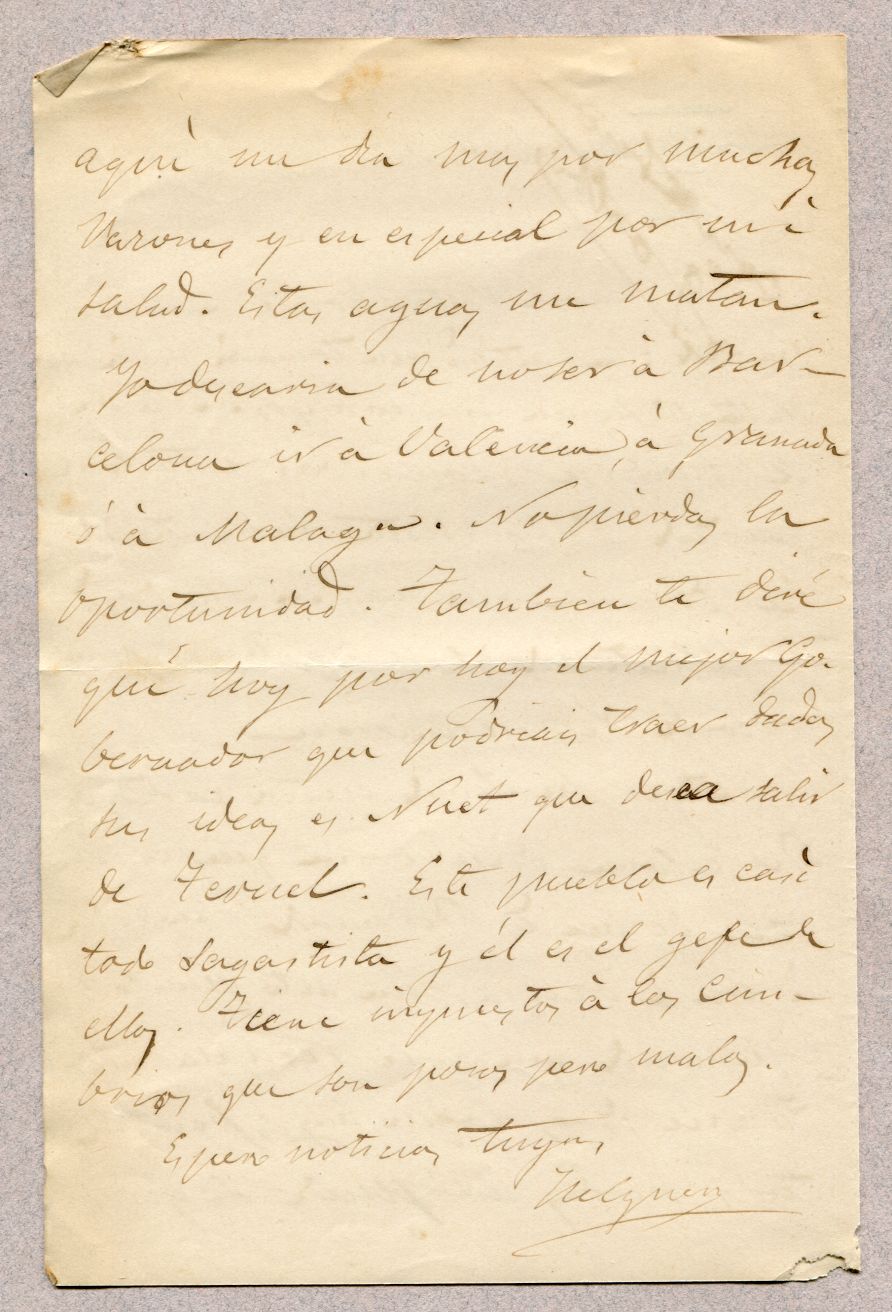 aquì un dia mas por muchas
razones y en especial por mi
salud. Estas aguas me matan.
Yo desearia de no ser à Bar-
celona ir à Valencia, à Granada
ó à Malaga. No pierdas la
oportunidad. Tambien te diré
que hoy por hoy el mejor Go-
bernador que podriais traer dadas
sus ideas es Nuet que desea salir
de Teruel. Este pueblo es casi
todo Sagastista y él es el gefe de
ellos. Tiene impuestos à los Cim-
brios que son pocos pero malos.
Espero noticias tuyas